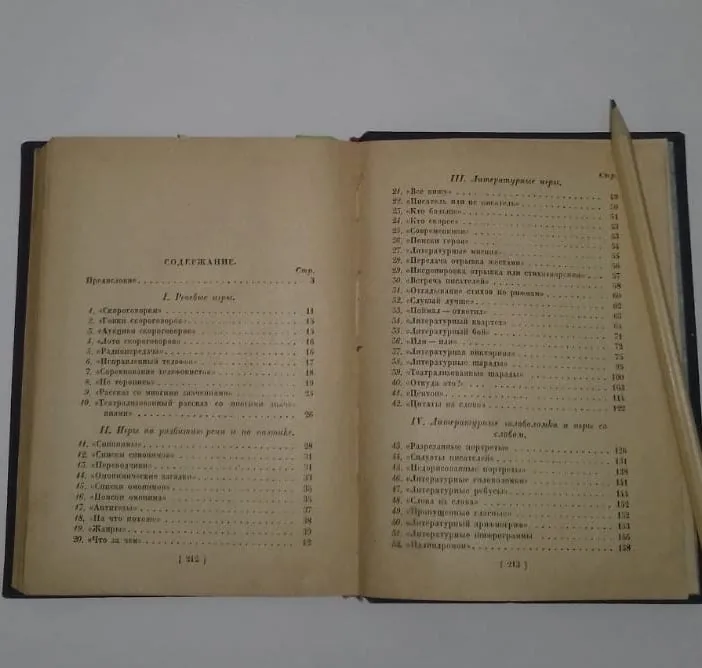 СОДЕРЖАНИЕ.
Стр.
Предисловие 3
I. Речевые игры.
1. «Скороговорки» 11
2. «Гонки скороговорок» 15
3. «Аукцион скороговорок» 15
4. «Лото скороговорок» 16
5. «Радиопередача» 16
6. «Исправленный телефон» 17
7. «Соревнования телефонистов» 18
8. «Не торопись» 19
9. «Рассказ со многими значениями» 23
10. «Театрализованный рассказ со многими значениями» 26
II. Игры по развитию речи и по
11. «Синонимы» 28
12. «Списки синонимов» 31
13. «Переводчики» 31
14. «Омонимические загадки» 33
15. «Списки омонимов» 35
16. «Поиски омонима» 35
17. «Антитезы» 37
18. «На что похоже» 38
19. «Жанры» 39
20. «Что за чем» 42
[ 212 ]
III. Литературные игры.
Стр.
21. «Все вижу» 49
22. «Писатель или не писатель» 50
23. «Кто больше» 51
24. «Кто скорее» 53
25. «Современники» 53
26. «Поиски героя» 54
27. «Литературные мнения» 55
28. «Передача отрывка жестами» 56
29. отрывка или стихотворения» 57
30. «Встреча писателей» 58
31. «Отгадывание стихов по рифмам» 60
32. «Слушай лучше» 62
33. «Поймал — ответил» 63
34. «Литературный квартет» 64
35. «Литературный бой» 71
36. «Или — или» 72
37. «Литературная викторина» 75
38. «Литературные шарады» 95
39. «Театрализованные шарады» 100
40. «Откуда это?» 103
41. «Центон» 114
42. «Цитаты на слово» 122
IV. Литературные головоломки и игры со
словом.
43. «Разрезанные портреты» 126
44. «Силуэты писателей» 131
45. «Недорисованные портреты» 138
46. «Литературные головоломки» 151
47. «Литературные ребусы» 151
48. «Слова из слова» 152
49. «Пропущенные гласные» 152
50. «Литературный» 153
51. «Литературные» 155
52. «Палиндромон» 158
[ 213 ]